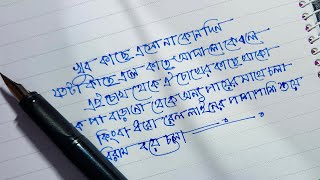 খুব কাছে এসো না কোনদিন
যতটা কাছে এলে কাছে আসা বলে লোকে
এই চোখ থেকে ঐ চোখের কাছে থাকা
এক পা বাড়ানো থেকে অন্য পায়ের সাথে চলা
কিংবা ধরো রেল লাইনের পাশাপাশি শুয়ে
অবিরাম বয়ে চলা